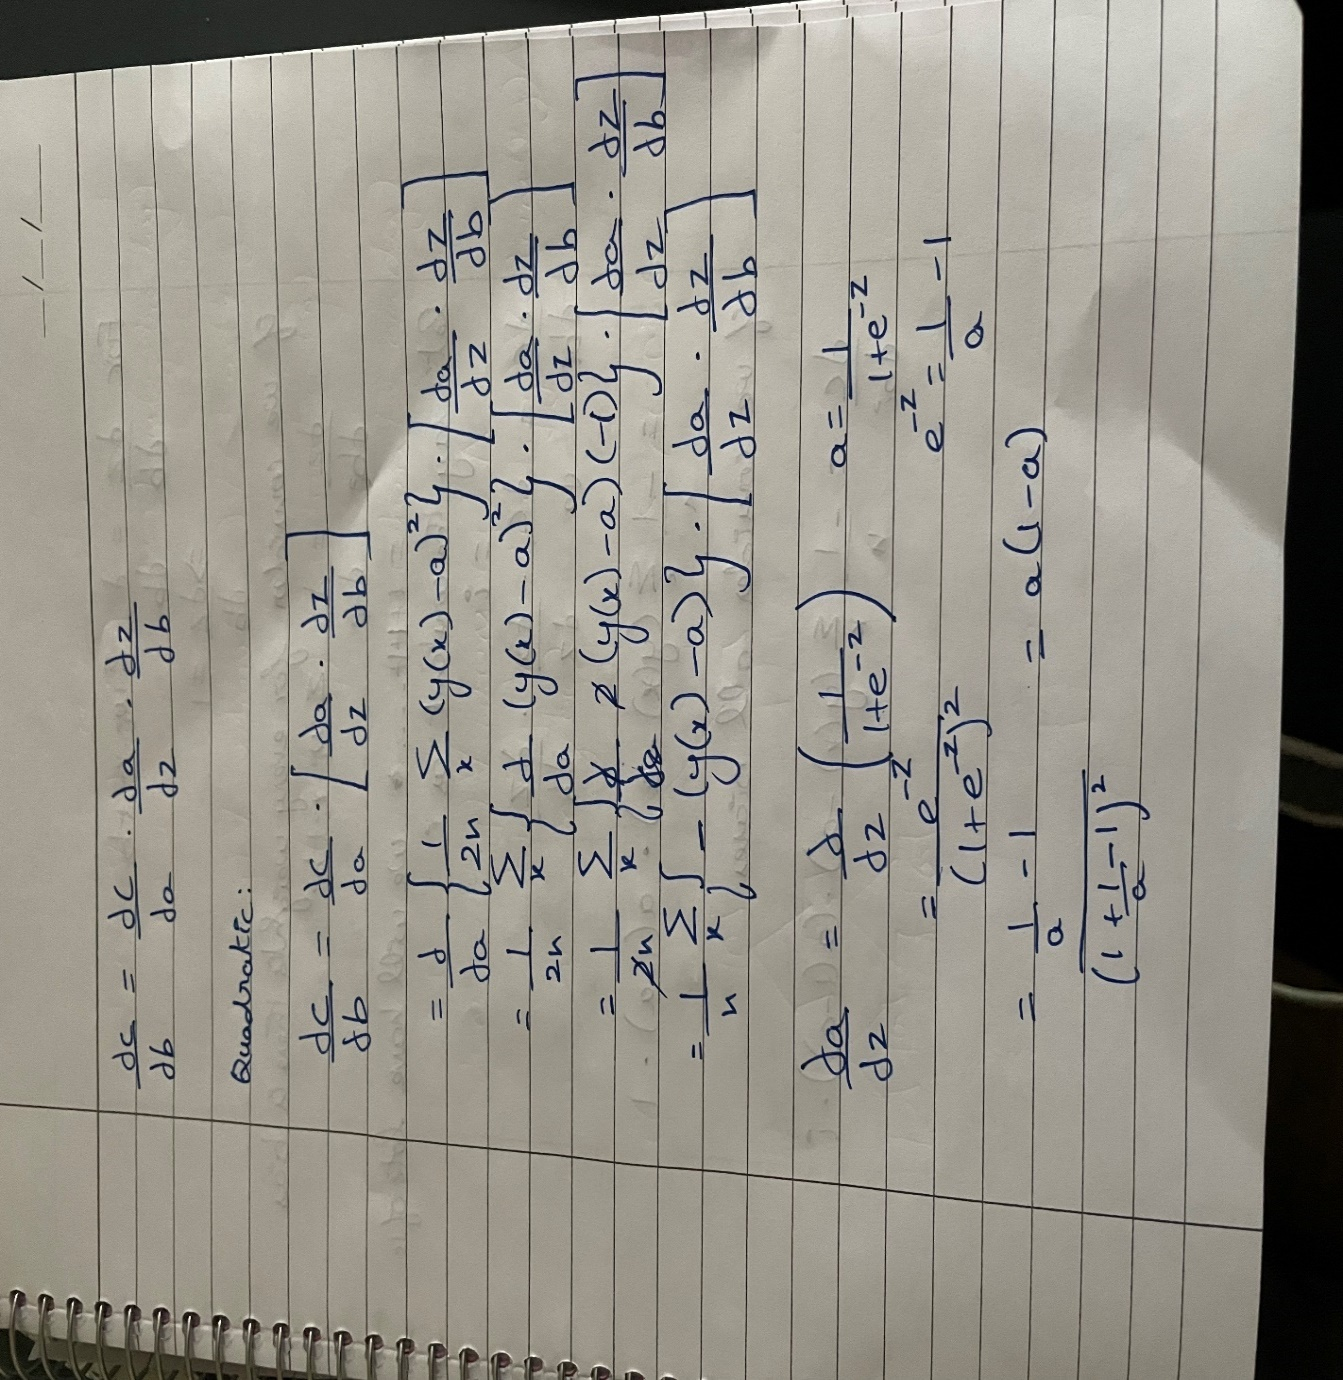 __/__/____
dc/db = dc/da · da/dz · dz/db
Quadratic:
dc/db = dc/da · [da/dz · dz/db]
= d/da { 1/2n Σx (y(x) – a)² } · [da/dz · dz/db]
= 1/2n Σx { d/da (y(x) – a)² } · [da/dz · dz/db]
= 1/2n Σx { d/da 2 (y(x) – a) (–1) } · [da/dz · dz/db]
= 1/n Σx { – (y(x) – a) } · [da/dz · dz/db]
da/dz = d/dz (1/(1+e^-z)) a = 1/(1+e^-z)
= e^-z/(1+e^-z)² e^-z = 1/a – 1
= (1/a – 1)/(1 + 1/a – 1)² = a(1 – a)